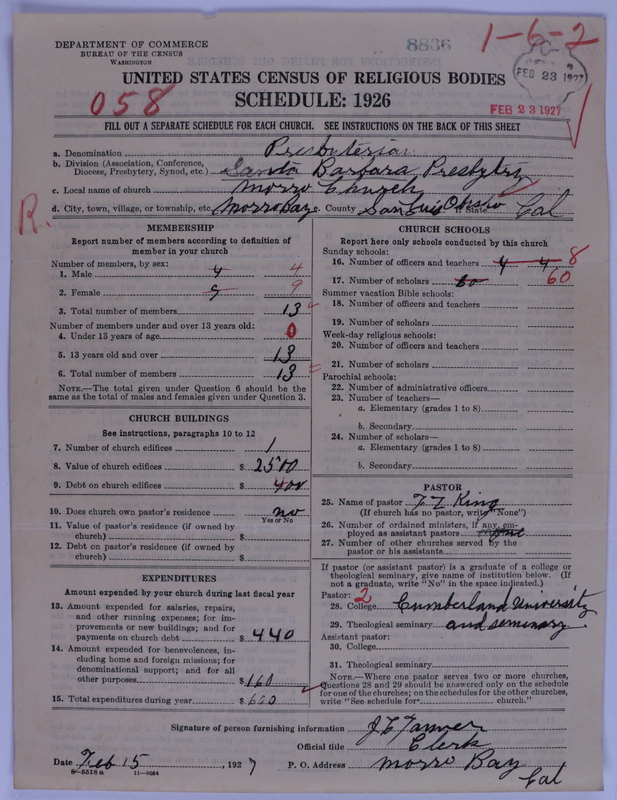 DEPARTMENT OF COMMERCE
BUREAU OF THE CENSUS
WASHINGTON
8836
1-6-2
FEB 23 1927
UNITED STATES CENSUS OF RELIGIOUS BODIES
058
SCHEDULE: 1926
FEB 23 1927
FILL OUT A SEPARATE SCHEDULE FOR EACH CHURCH. SEE INSTRUCTIONS ON THE BACK OF THIS SHEET
a. Denomination Presbyterian
b. Division (Association, Conference, Diocese, Presbytery, Synod, etc.) Santa Barbara Presbytry
c. Local name of church Morro Church
d. City, town, village, or township, etc. Morro Bay e. County San Luis Obispo f. State Cal
R.
MEMBERSHIP
Report number of members according to definition of
member in your church
Number of members, by sex:
1. Male 4 4
2. Female 9 9
3. Total number of members 13
Number of members under and over 13 years old:
4. Under 13 years of age 0
5. 13 years old and over 13
6. Total number of members 13
NOTE.—The total given under Question 6 should be the
same as the total of males and females given under Question 3.
CHURCH BUILDINGS
See instructions, paragraphs 10 to 12
7. Number of church edifices 1
8. Value of church edifices $ 2500
9. Debt on church edifices $ 400
10. Does church own pastor's residence no
Yes or No
11. Value of pastor's residence (if owned by
church) $
12. Debt on pastor's residence (if owned by
church) $
EXPENDITURES
Amount expended by your church during last fiscal year
13. Amount expended for salaries, repairs,
and other running expenses; for im-
provements or new buildings; and for
payments on church debt $ 440
14. Amount expended for benevolences, in-
cluding home and foreign missions; for
denominational support; and for all
other purposes $ 160
15. Total expenditures during year $ 600
CHURCH SCHOOLS
Report here only schools conducted by this church
Sunday schools:
16. Number of officers and teachers 4 4 8
17. Number of scholars 60 60
Summer vacation Bible schools:
18. Number of officers and teachers
19. Number of scholars
Week-day religious schools:
20. Number of officers and teachers
21. Number of scholars
Parochial schools:
22. Number of administrative officers
23. Number of teachers—
a. Elementary (grades 1 to 8)
b. Secondary
24. Number of scholars—
a. Elementary (grades 1 to 8)
b. Secondary
PASTOR
25. Name of pastor King
(If church has no pastor, write "None")
26. Number of ordained ministers, if any, em-
ployed as assistant pastors none
27. Number of other churches served by the
pastor or his assistants
If pastor (or assistant pastor) is a graduate of a college or
theological seminary, give name of institution below. (If
not a graduate, write "No" in the space indicated.)
Pastor: 2
28. College Cumberland University
29. Theological seminary and seminary
Assistant pastor:
30. College
31. Theological seminary
NOTE.—Where one pastor serves two or more churches,
Questions 28 and 29 should be answered only on the schedule
for one of the churches; on the schedules for the other churches,
write "See schedule for church."
Signature of person furnishing information
Official title Clerk
Date Feb 15, 1927 P. O. Address Morro Bay
Cal
8—5518 a 11—7054